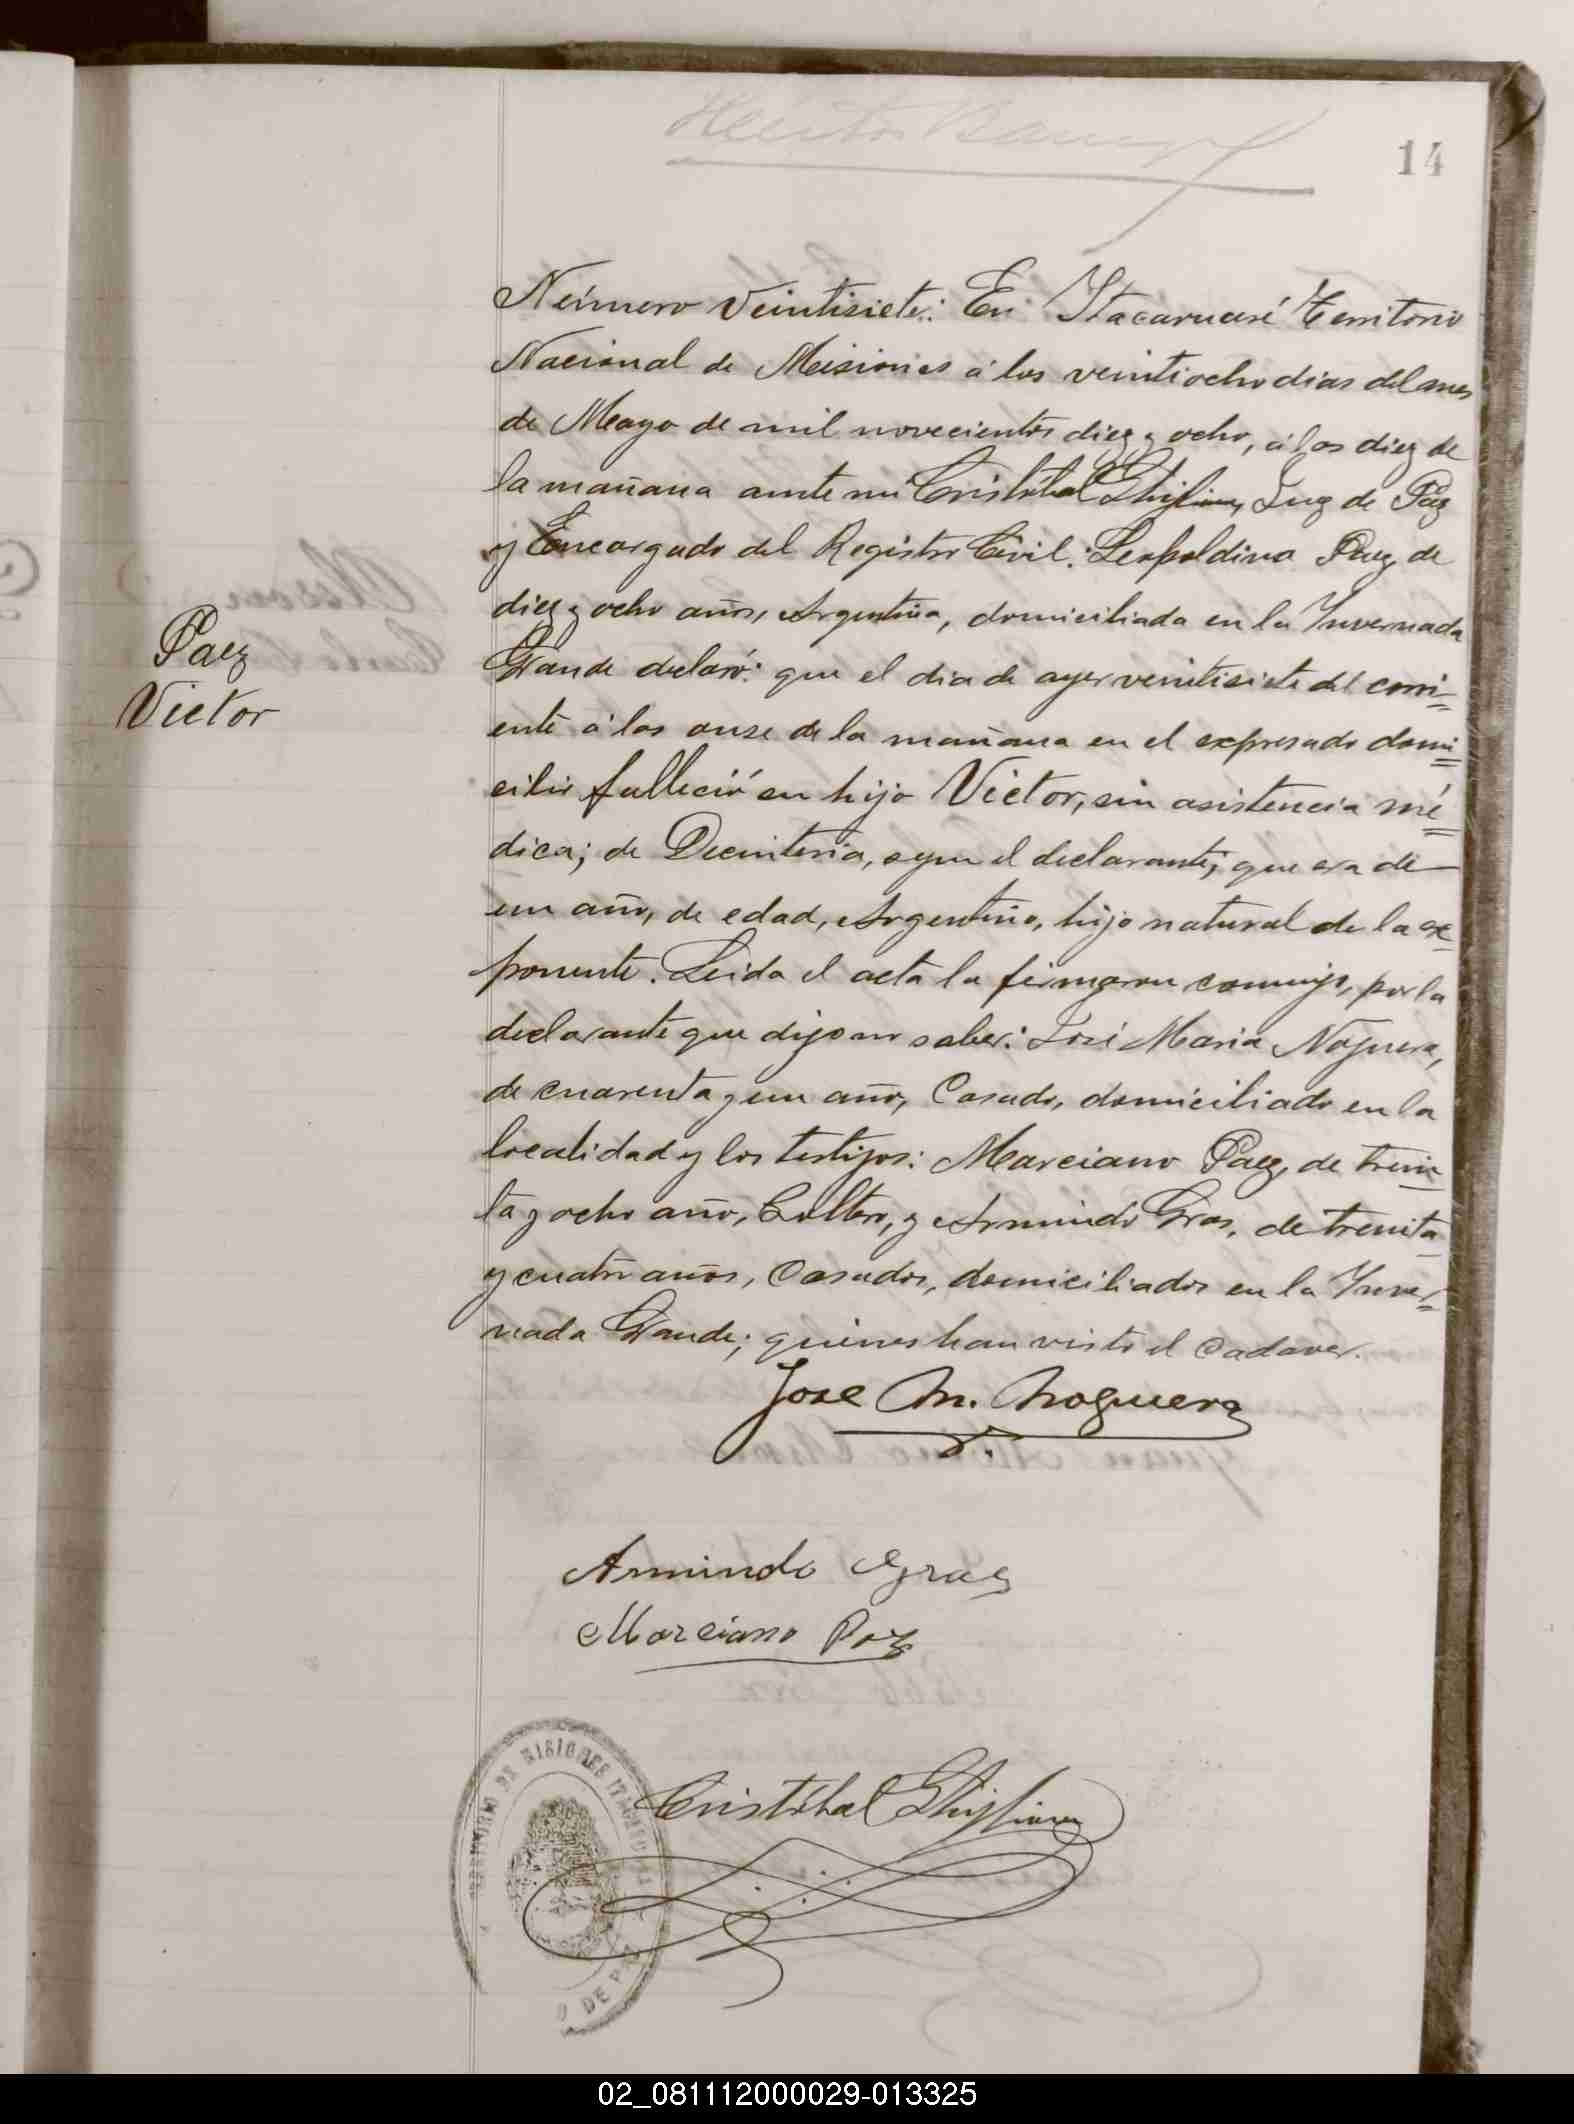 14
Número Veintisiete: En Itacaruaré Territorio
Nacional de Misiones á los veintiocho dias del mes
de Mayo de mil novecientos diez y ocho, á las diez de
la mañana ante mi Cristóbal Ghiglione, Juez de Paz
y Encargado del Registro Civil: Leopoldina Paez, de
diez y ocho años, Argentina, domiciliada en la Invernada
Grande declaró: que el dia de ayer veintisiete del corri=
ente á las onse de la mañana en el expresado domi=
cilio falleció su hijo Victor, sin asistencia mé=
dica; de Decinteria, segun el declarante; que era de
un año, de edad, Argentino, hijo natural de la ex=
ponente. Leida el acta la firmaron conmigo, por la
declarante que dijo no saber: José Maria Noguera,
de cuarenta y un año, Casado, domiciliado en la
localidad y los testigos: Marciano Paez, de trein=
ta y ocho año, Soltero, y Armindo Gras, de treinta
y cuatro años, Casados, domiciliados en la Inver=
nada Grande; quienes han visto el cadaver.
Paez
Victor
Jose M. Noguera
Armindo Gras
Marciano Paz
Cristóbal Ghiglione
TERRITORIO DE MISIONES
DE PAZ
02_081112000029-013325